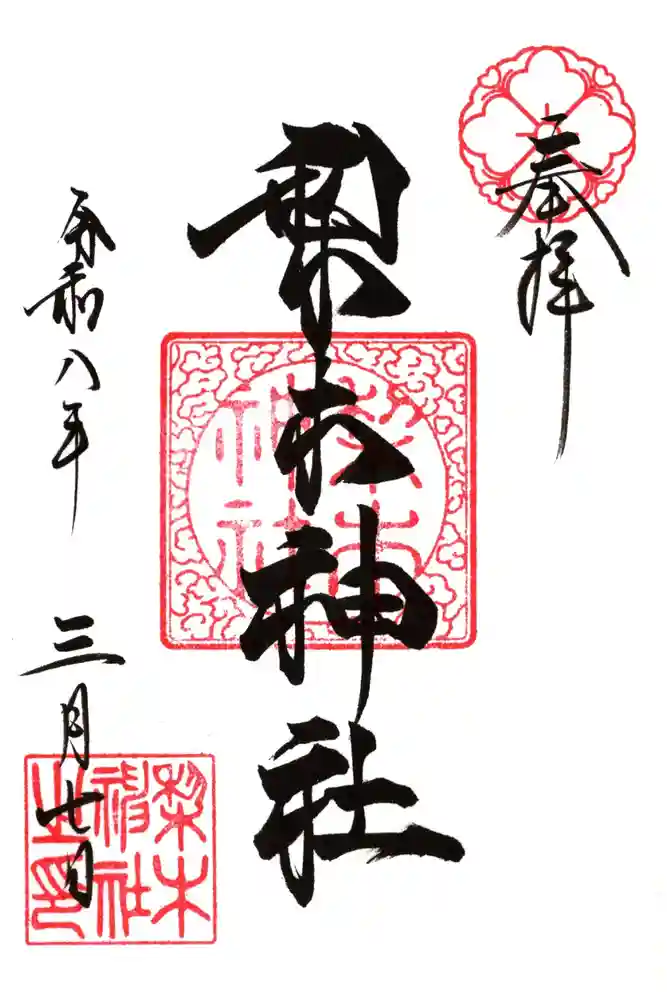 奉拝
梨木神社
梨木
神社
令和八年 三月七日
梨木
神社
之印